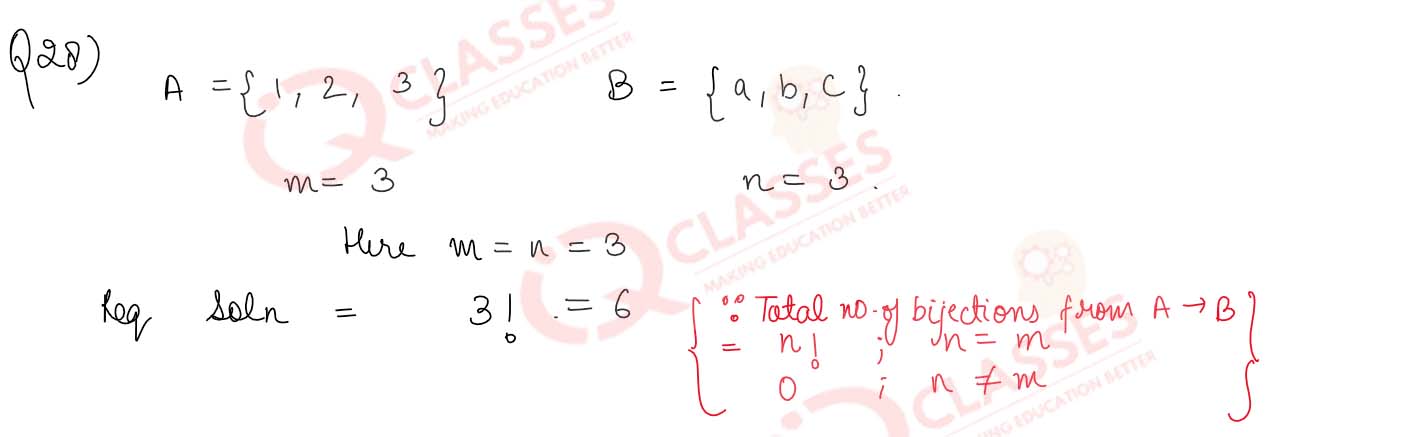 Q28)
A = {1, 2, 3} B = {a, b, c}.
m = 3 n = 3.
Here m = n = 3
Req Soln = 3! . = 6 { ∵ Total no. of bijections from A → B
= n! ; n = m
0 ; n ≠ m }
CLASSES
MAKING EDUCATION BETTER
CLASSES
MAKING EDUCATION BETTER
CLASSES
MAKING EDUCATION BETTER